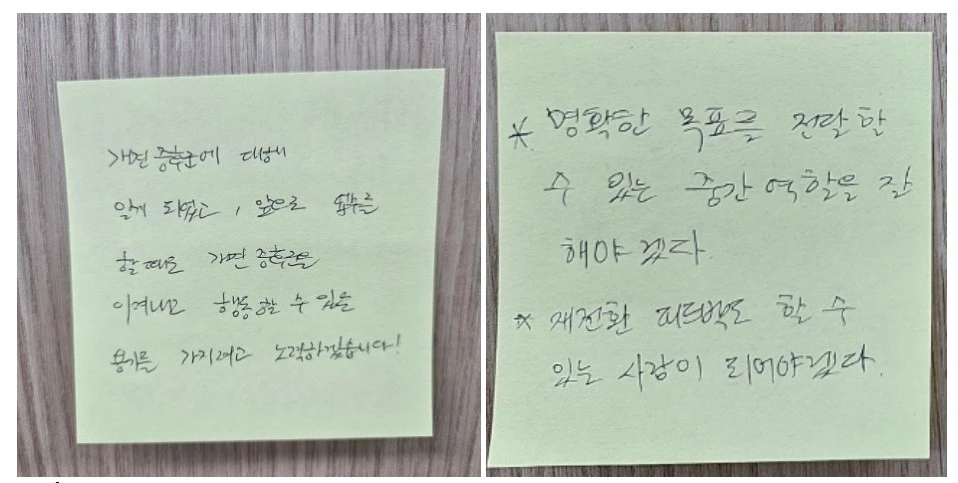 가면 증후군에 대해
알게 되었고, 앞으로 업무를
할 때도 가면 증후군을
이겨내고 행동할 수 있는
용기를 가지려고 노력하겠습니다!
* 명확한 목표를 전달할
수 있는 중간 역할을 잘
해야겠다.
* 재전환 피드백도 할 수
있는 사람이 되어야겠다.